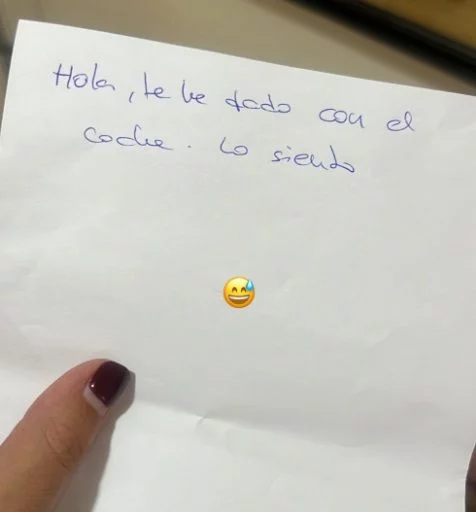 Hola, te he dado con el
coche. Lo siento